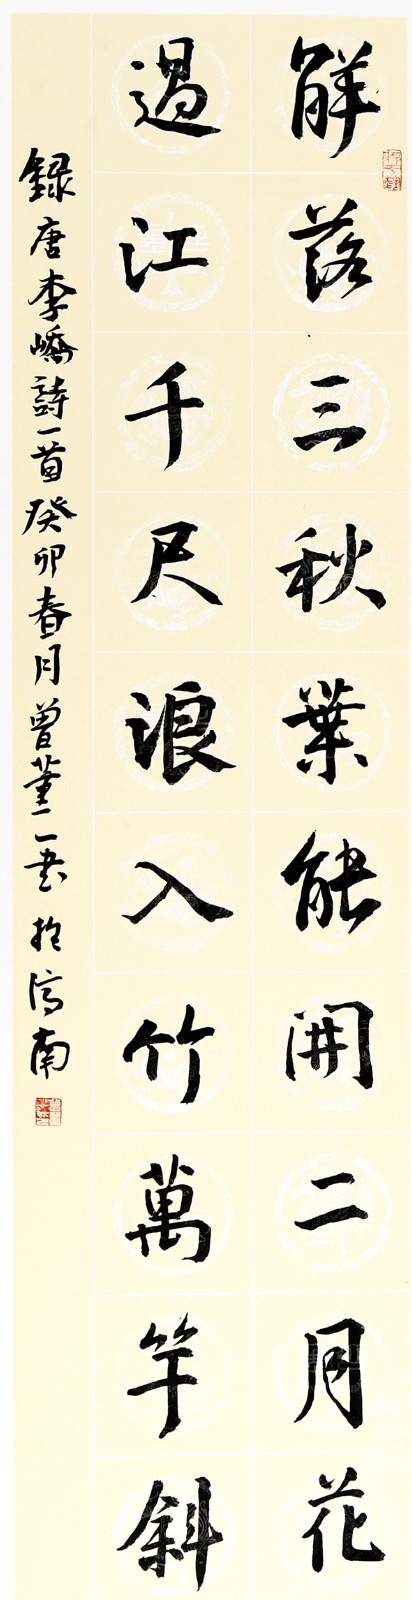 解落三秋葉能開二月花
過江千尺浪入竹萬竿斜
録唐李嶠詩一首癸卯春月曾董一书於济南